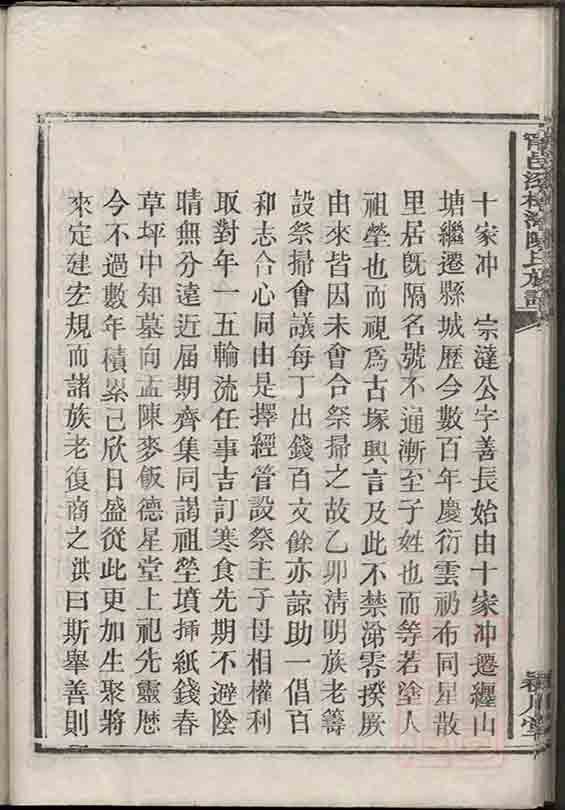 十家冲　宗達公字善長始由十家冲遷纏山
塘繼遷縣城歷今數百年慶衍雲礽布同星散
里居旣隔名號不通漸至子姓也而等若塗人
祖塋也而視爲古塚興言及此不禁潸零揆厥
由來皆因未會合祭掃之故乙卯清明族老籌
設祭掃會議每丁出錢百文餘亦諒助一倡百
和志合心同由是擇經管設祭主子母相權利
取對年一五輪流任事吉訂寒食先期不避陰
晴無分遠近屆期齊集同謁祖塋墳揷紙錢春
草坪中知墓向盂陳麥飯德星堂上祀先靈歷
今不過數年積累已欣日盛從此更加生聚將
來定建宏規而諸族老復商之洪曰斯舉善則